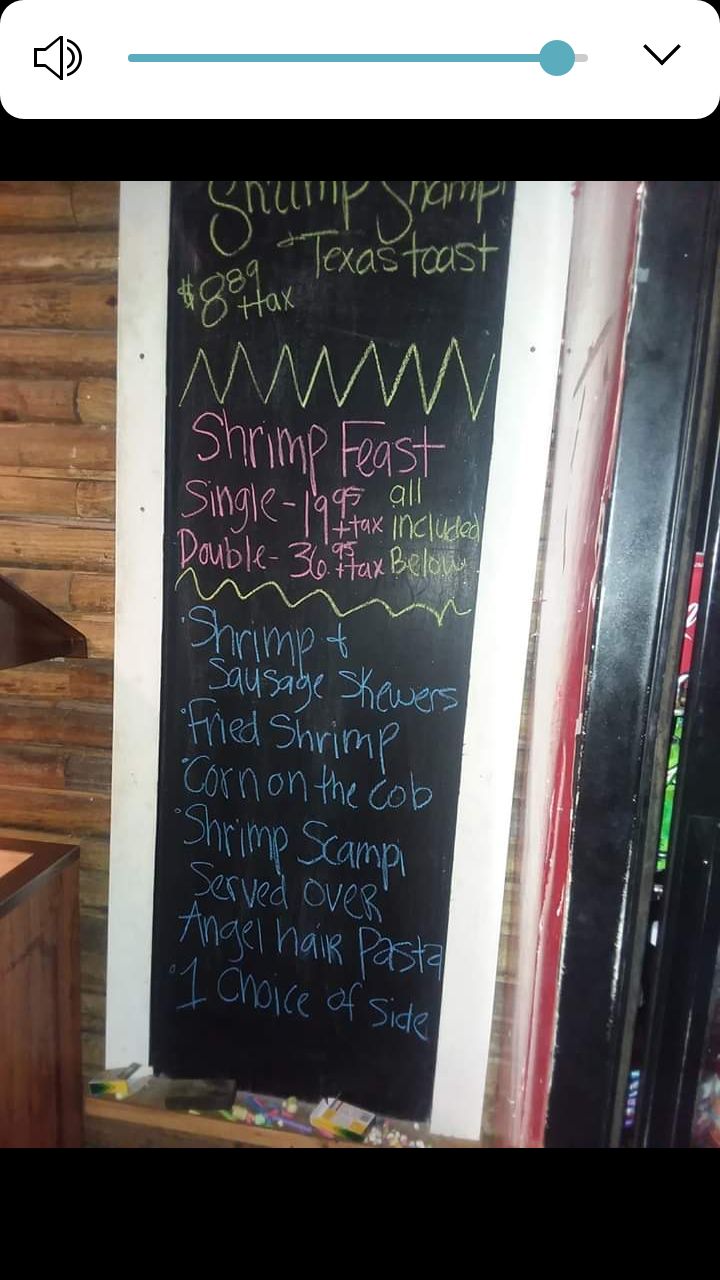 Shrimp Shampi
Texas toast
$8.89 +tax
Shrimp Feast
Single - 19.95 +tax all included
Double - 36.95 +tax Below
• Shrimp +
Sausage Skewers
• Fried Shrimp
• Corn on the Cob
• Shrimp Scampi
Served over
Angel hair Pasta
• 1 Choice of Side